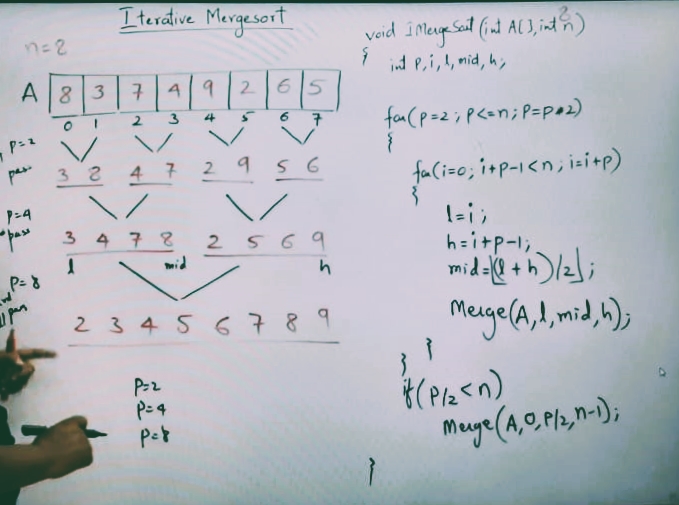 Iterative Mergesort
n=8
A 8 3 7 4 9 2 6 5
0 1 2 3 4 5 6 7
p=2
pass
3 8 4 7 2 9 5 6
p=4
pass
3 4 7 8 2 5 6 9
l mid h
p=8
pass
2 3 4 5 6 7 8 9
p=2
p=4
p=8
8
void IMergeSort(int A[], int n)
{
int p, i, l, mid, h;
for(p=2; p<=n; p=p*2)
{
for(i=0; i+p-1<n; i=i+p)
{
l=i;
h=i+p-1;
mid=⌊(l+h)/2⌋;
Merge(A, l, mid, h);
}
}
if(p/2<n)
Merge(A, 0, p/2, n-1);
}